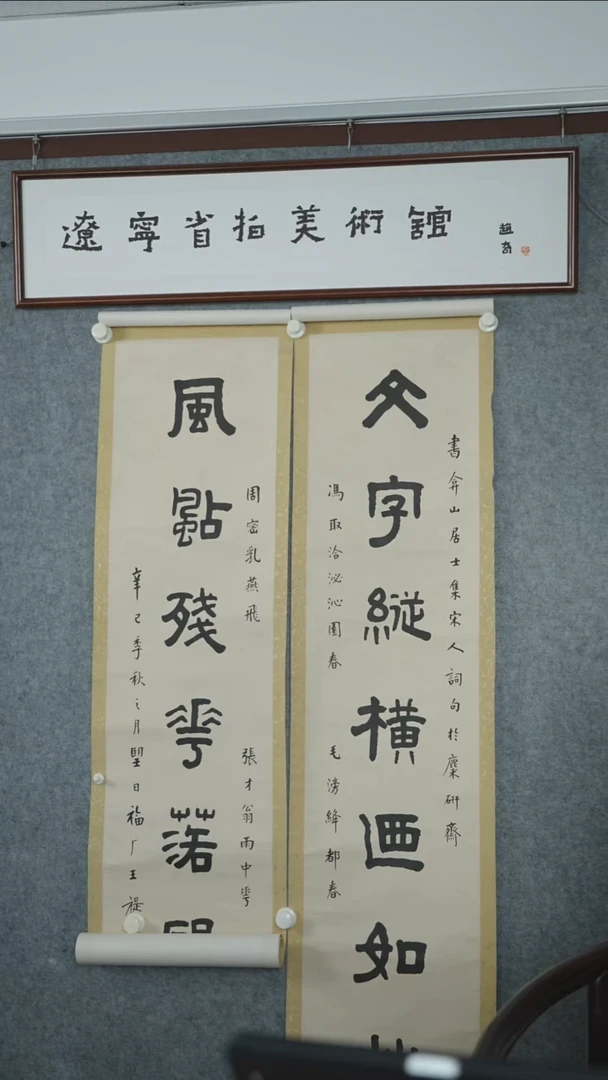 遼寧省拍美術館
趙奇
書弇山居士集宋人詞句於麋研齋
文字縱橫迺如
馮取洽泌沁園春 毛滂絳都春
周密乳燕飛 張才翁雨中華
風點殘華落
辛巳季秋之月朢日福厂王禔